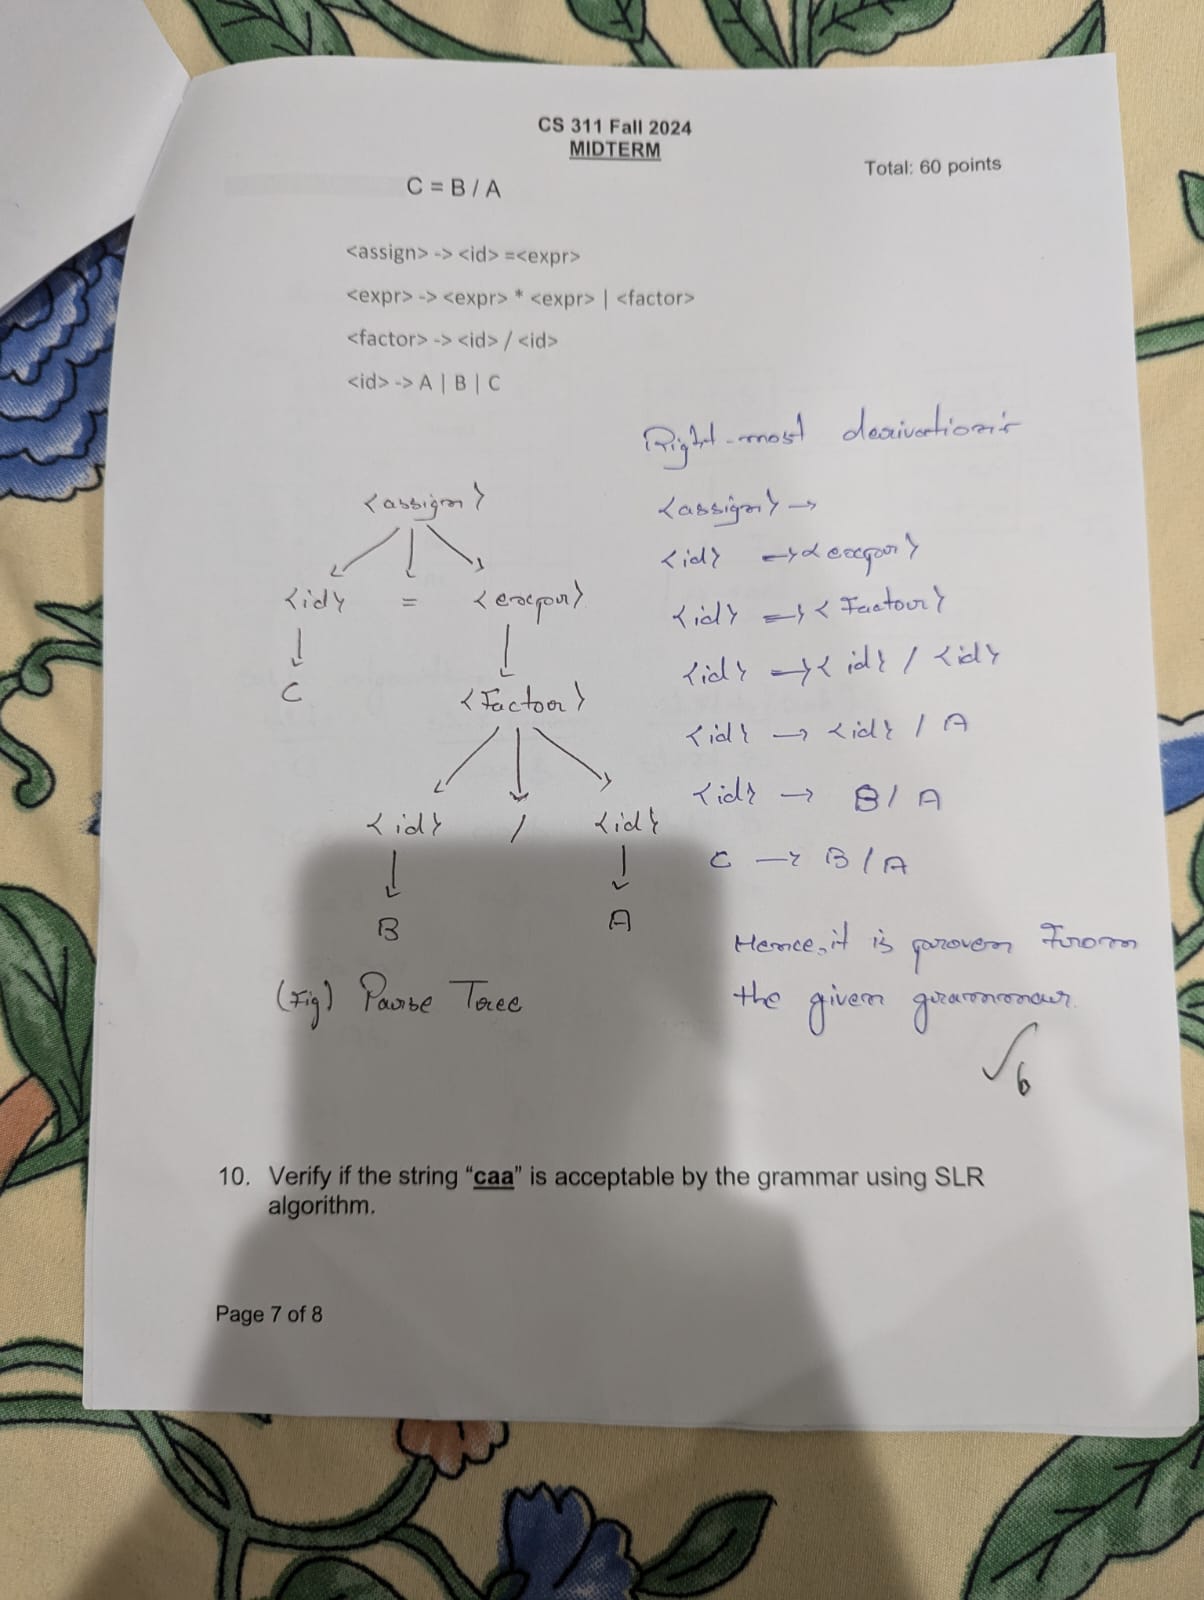 CS 311 Fall 2024
MIDTERM
Total: 60 points
C = B / A
<assign> -> <id> =<expr>
<expr> -> <expr> * <expr> | <factor>
<factor> -> <id> / <id>
<id> -> A | B | C
<assign>
<id> = <expr>
C
<Factor>
<id> / <id>
B A
(Fig) Parse Tree
Right-most derivation:-
<assign> →
<id> => <expr>
<id> => <Factor>
<id> => <id> / <id>
<id> → <id> / A
<id> → B / A
C → B / A
Hence, it is proven From
the given grammar.
√6
10. Verify if the string “caa” is acceptable by the grammar using SLR
algorithm.
Page 7 of 8